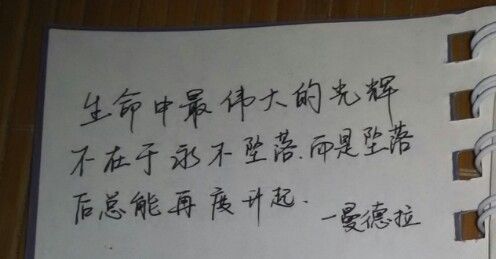 生命中最伟大的光辉
不在于永不坠落.而是坠落
后总能再度升起.
一曼德拉